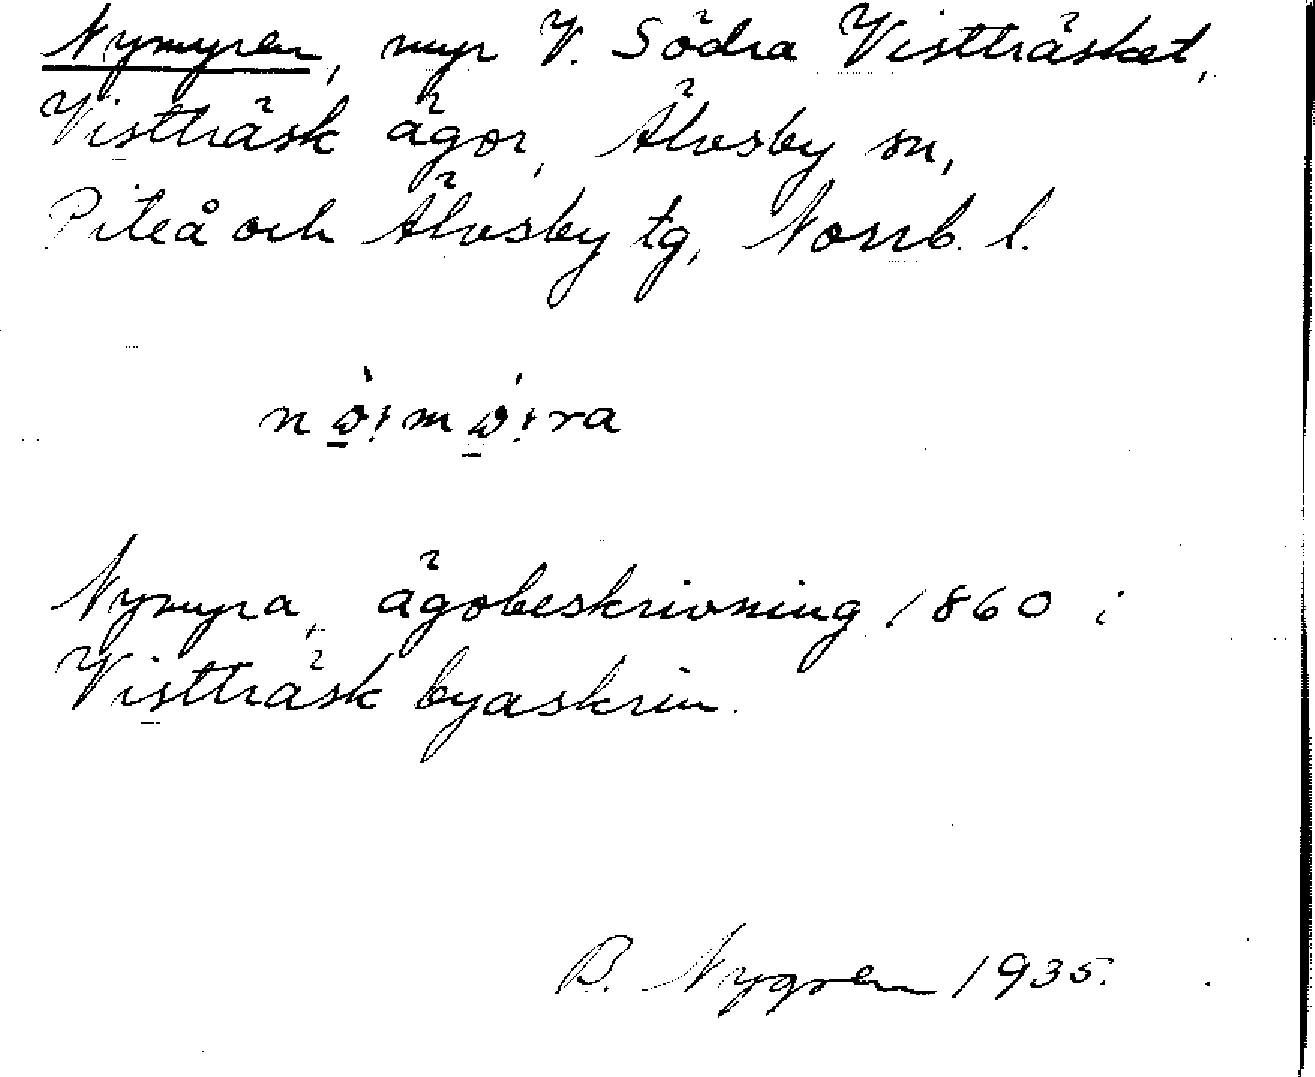 Nymyren, myr V. Södra Vistträsket,
Vistträsk ägor, Älvsby sn,
Piteå och Älvsby tg, Norrb. l.
Nymyra, ägobeskrivning 1860 i
Vistträsk byaskrin.
B. Nygren 1935.